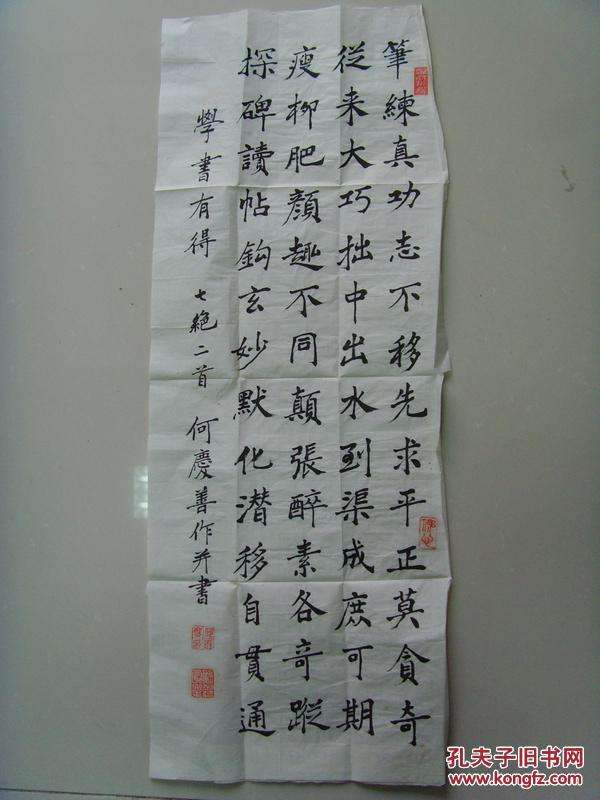 筆練真功志不移先求平正莫貪奇
從来大巧拙中出水到渠成庶可期
瘦柳肥顏趣不同顛張醉素各奇蹤
探碑讀帖鈎玄妙默化潜移自貫通
學書有得 七絕二首 何慶善作并書
孔夫子旧书网
www.kongfz.com